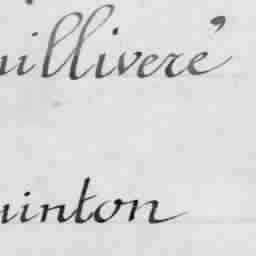 uilliveré
uinton